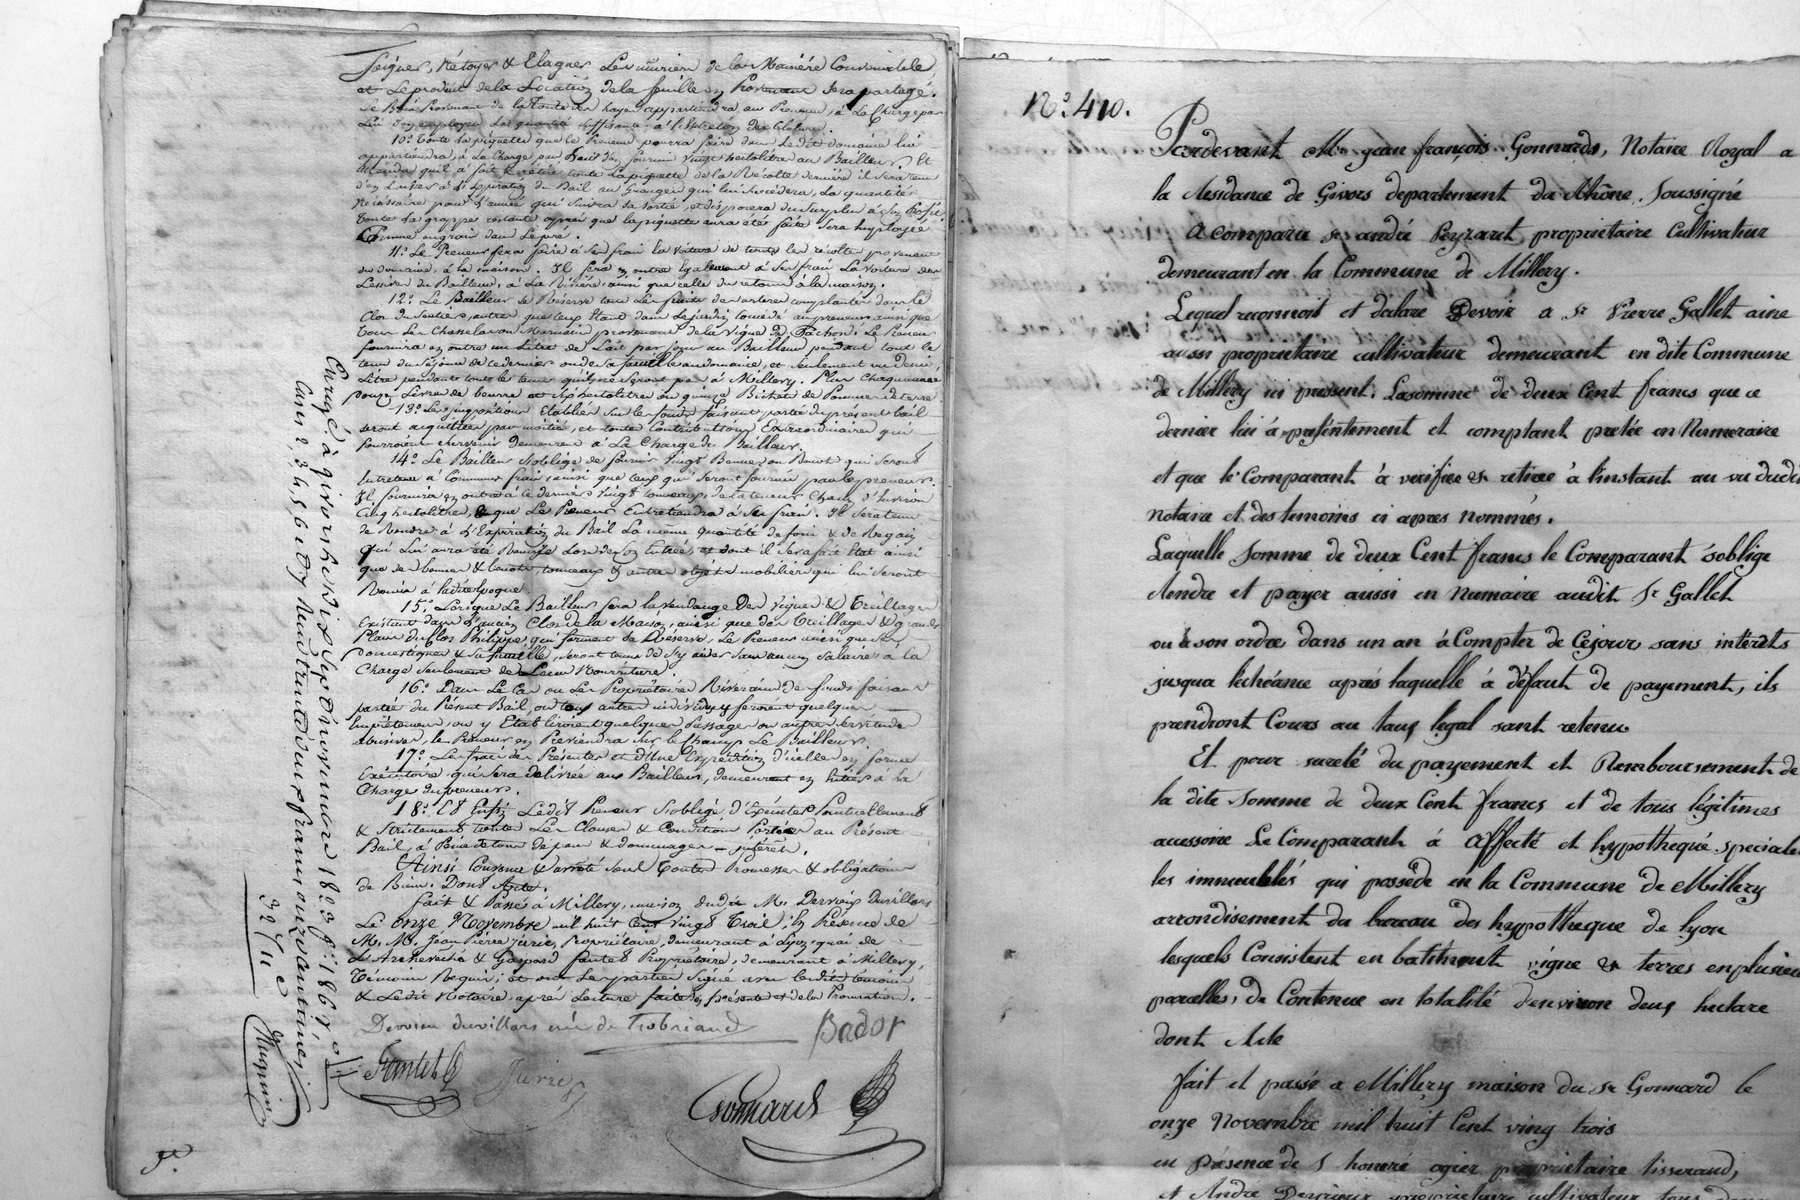 Soigner, Nétoyer & Elaguer Les muriers de la Maniére Convenable
et Le produit de la Location de la feuille en Provenant Sera partagé.
Le Bois Provenant de la Tonte des hayes appartiendra au Preneur, à La Charge par
Lui d'en employer La quantité suffisante à l'Entretien des Clotures.
10.° Toute La piquette que le Preneur pourra faire dans Le dit domaine lui
appartiendra, à La Charge par Lui d'en fournir vingt hectolitres au Bailleur. Et
attendu qu'il a fait & retiré toute La piquette de la Récolte derniére il sera tenu
d'en Laisser à L'Expiration du Bail au Granger qui lui Succédera, La quantité
Nécéssaire pour l'année qui Suivra Sa Sortie, et disposera du Surplus à Son Profit
toute La grappe restante aprés que la piquette aura été faite Sera employée
Comme engrais dans Le pré.
11.° Le Preneur fera faire à Ses frais la voiture de toutes les récoltes provenant
du domaine, à la maison. Il fera en outre également à Ses frais La voiture des
Lessives du Bailleur, à La Riviére, ainsi que celle du retour à la maison.
12.° Le Bailleur Se Réserve tous Les fruits des arbres complantés dans le
Clos du Sentier, autres que ceux étant dans Le jardin concédé au preneur, ainsi que
tous Les Chasselas ou Mornain provenant de la vigne de Fachon. Le Preneur
fournira en outre un Litre de Lait par jour au Bailleur pendant tout le
tems du Séjour de ce dernier ou de Sa famille au domaine, et Seulement un demi
Litre pendant tout le tems qu'ils ne Seront pas à Millery. Plus Chaque année
douze Livres de beurre et Six hectolitres ou quinze Bichets de Pommes de terre.
13.° Les impositions établies Sur les fonds faisant partie du présent bail
seront acquittées par moitié, et toutes Contributions Extraordinaires qui
pourroient Survenir demeurent à La Charge du Bailleur.
14.° Le Bailleur S'oblige de fournir vingt Bennes ou Benots qui Seront
Entretenus à Communs frais, ainsi que ceux qui Seront fournis par le preneur.
Il fournira en outre à ce dernier vingt tonneaux de la teneur Chacun d'Environ
Cinq hectolitres, que Le Preneur Entretiendra à Ses frais. Il Sera tenu
de Rendre à L'Expiration du Bail La même quantité de foin & de Regain
qui Lui aura été Remise Lors de Son Entrée, et dont il Sera fait Etat ainsi
que des bennes & benots tonneaux & autres objets mobiliers qui lui Seront
Remis à la dite époque.
15.° Lorsque Le Bailleur fera la vendange des vignes & Treillages
Existant dans L'ancien Clos de la Maison, ainsi que des Treillages & grandes
Plans du Clos Philippe qui forment Sa Réserve, Le Preneur ainsi que Ses
domestiques & Sa famille, Seront tenus de S'y aider Sans aucun Salaire à la
Charge Seulement de Leur Nourriture.
16.° Dans Le Cas ou Les Propriétaires Riverains des fonds faisant
partie du Présent Bail, ou tous autres individus y feroient quelques
Empiétemens, ou y Etabliroient quelques passages ou autres Servitudes
abusives, le Preneur en Préviendra Sur le Champ Le Bailleur.
17.° Les frais des Présentes et d'une Expédition d'icelles en forme
Exécutoire qui Sera délivrée au Bailleur, demeurent en Entier à La
Charge du preneur.
18.° Et Enfin Ledit Preneur S'oblige d'Exécuter Ponctuellement
& Strictement toutes Les Clauses & Conditions Portées au Présent
Bail, à Peine de tous dépens & dommages-intérêts.
Ainsi Convenu & arrêté Sous Toutes Promesses & obligations
de Biens. Dont Acte.
fait & Passé à Millery, maison dudit Mr. Dervieu Duvillars
Le onze Novembre mil huit Cent vingt Trois, En Présence de
M. M. Jean Pierre Jurie, Propriétaire, demeurant à Lyon, quai de
L'Archevêché & Gaspard Fantet Propriétaire, demeurant à Millery,
Témoins Requis; et ont Les parties Signé avec lesdits témoins
& Le dit Notaire aprés Lecture faite des présentes & de la Promulgation.
Dervieu duvillars née de Trobriand Badot
Fantet Jurie
Gonnard
Enregé à givors le Dix Sept novembre 1823 f.° 186 r.°
Cases 2, 3, 4, 5, 6 et 7, Reçu trente deux francs onze centimes,
32 f 11 c
N.° 410.
Pardevant Me jean françois Gonnard, Notaire Royal a
la Residance de Givors departement du Rhône, Soussigné
A comparu sr andré Peyraret proprietaire Cultivateur
demeurant en la Commune de Millery.
Lequel reconnoit et declare Devoir a Sr Pierre Gallet ainé
aussi proprietaire cultivateur demeurant en dite Commune
de Millery ici present. La somme de deux Cent francs que ce
dernier lui à présentement et comptant pretée en Numeraire
et que le Comparant à verifiée & retirée à l'instant au vu dudit
notaire et des temoins ci apres nommés.
Laquelle Somme de deux Cent francs le Comparant s'oblige
Rendre et payer aussi en numaire audit Sr Gallet
ou à son ordre dans un an à Compter de Cejour, sans interêts
jusqua l'echéance aprés laquelle à défaut de payement, ils
prendront Cours au taux legal sant retenu.
Et pour sureté du payement et Remboursement de
la dite Somme de deux Cent francs et de tous légitimes
accessoire Le Comparant à Affecté et hypothequé speciale
les immeublés qui possède en la Commune de Millery
arrondisement du bureau des hypotheque de lyon
lesquels Consistent en batiment vigne & terres en plusieurs
parcelles, de Contenue en totalité d'environ deux hectare
dont Acte
fait et passé a Millery maison du Sr Gonnard le
onze Novembre mil huit Cent ving trois
en présence de S honoré ogier proprietaire tisserand,